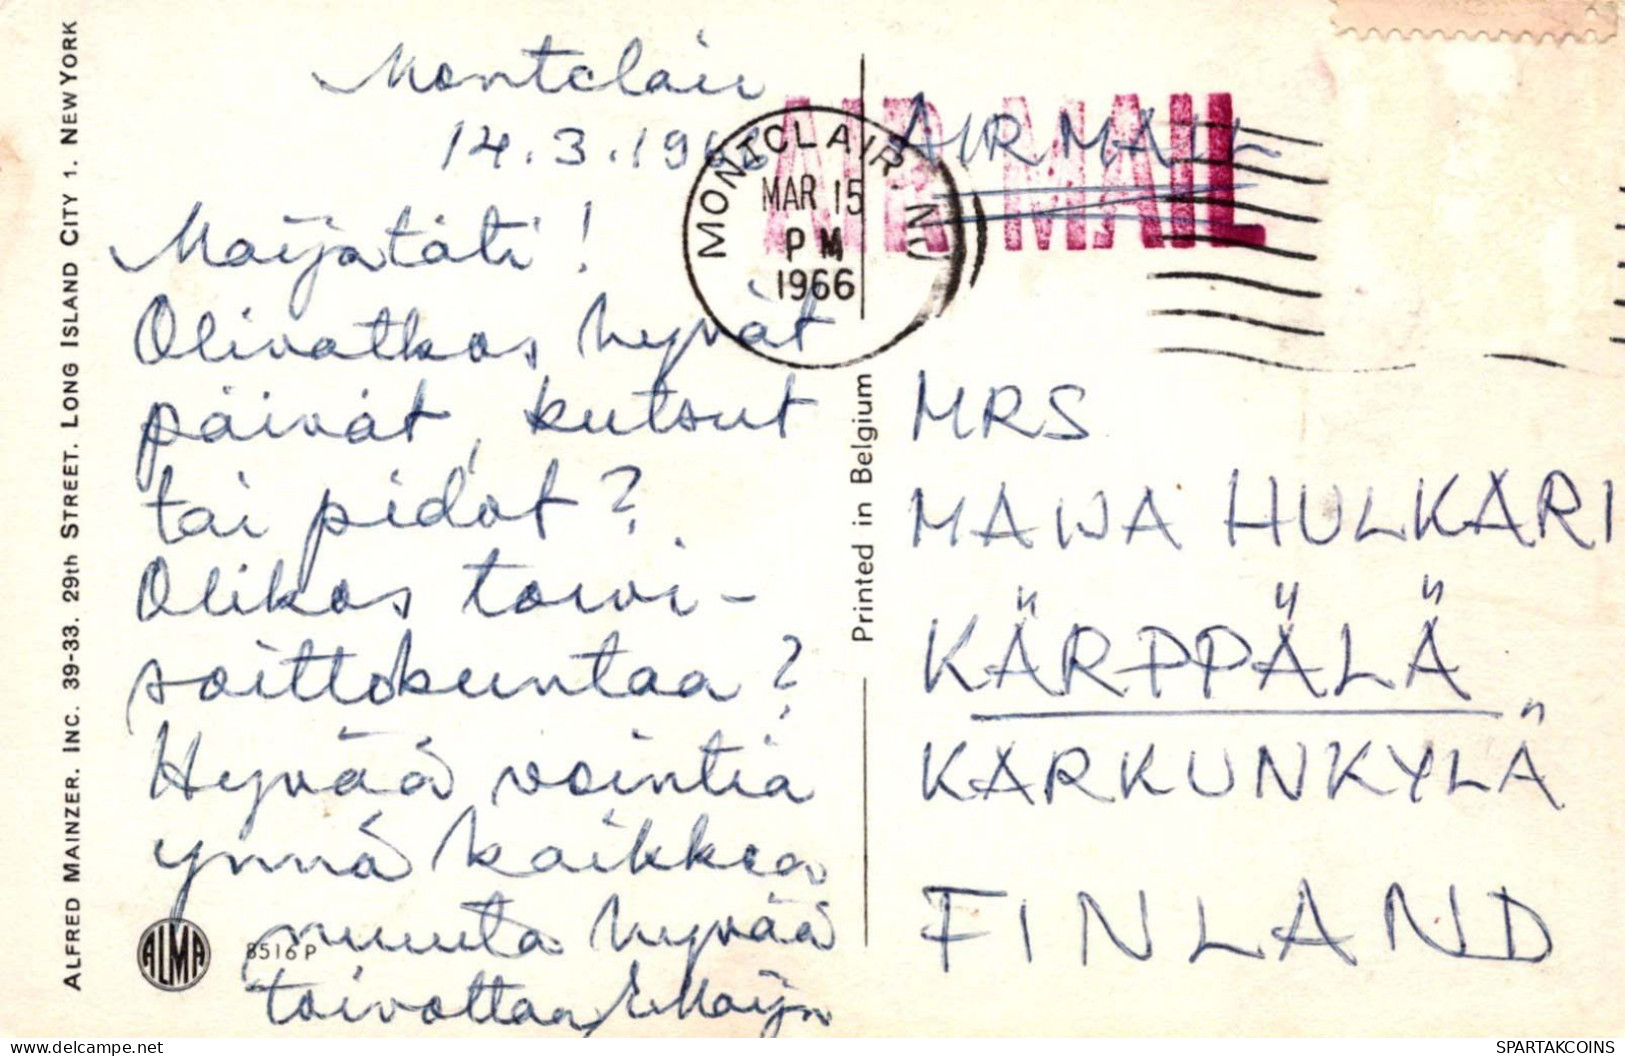 Montclair
14.3.1966
Maijatäti!
Olivatkos hyvät
päivät, kutsut
tai pidot?
Olikos torvi-
soittokuntaa?
Hyvää vointia
ynnä kaikkea
muuta hyvää
toivottaa
AIR MAIL
AIR MAIL
MONTCLAIR NJ
MAR 15
PM
1966
MRS
MAIJA HULKARI
KÄRPPÄLÄ
KARKUNKYLÄ
FINLAND
Printed in Belgium
ALFRED MAINZER. INC. 39-33. 29th STREET. LONG ISLAND CITY 1. NEW YORK
ALMA
8516 P
delcampe.net
SPARTAKCOINS